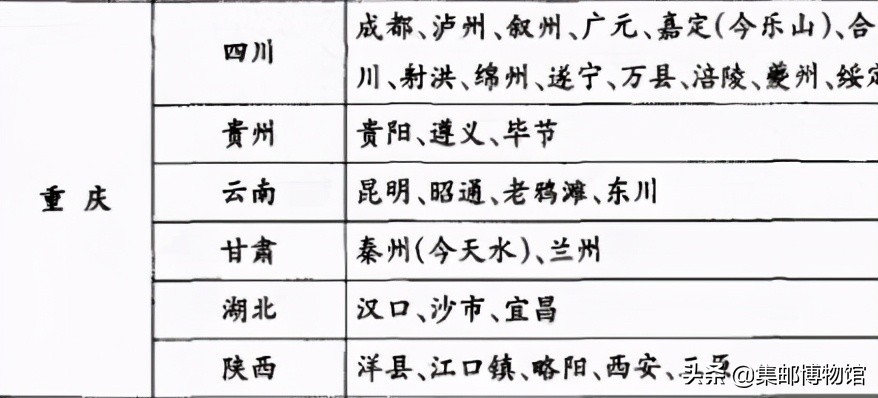 四川
成都、泸州、叙州、广元、嘉定(今乐山)、合
川、射洪、绵州、遂宁、万县、涪陵、夔州、绥定
贵州
贵阳、遵义、毕节
重庆
云南
昆明、昭通、老鸦滩、东川
甘肃
秦州(今天水)、兰州
湖北
汉口、沙市、宜昌
陕西
洋县、江口镇、略阳、西安、三原
头条 @集邮博物馆